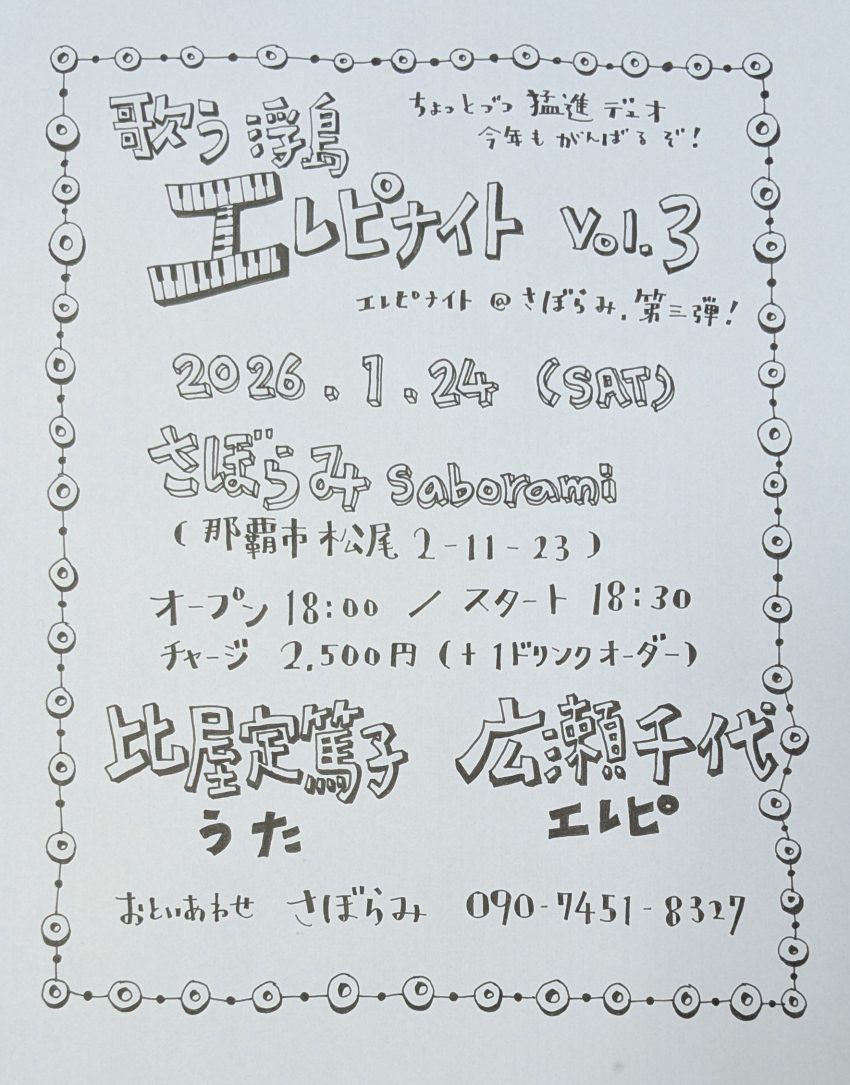 歌う浮島
ちょっとづつ 猛進 デュオ
今年も がんばる ぞ!
エレピナイト Vol.3
エレピナイト @ さぼらみ. 第三弾!
2026.1.24 (SAT)
さぼらみ saborami
(那覇市松尾 2-11-23)
オープン 18:00 / スタート 18:30
チャージ 2,500円 (+1ドリンクオーダー)
比屋定篤子 広瀬千代
うた エレピ
おといあわせ さぼらみ 090-7451-8327